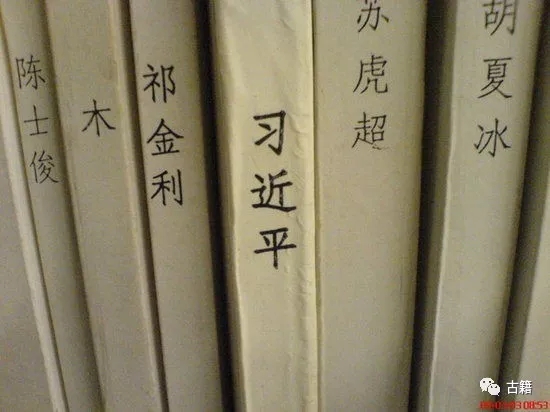 陈士俊
木
祁金利
习近平
苏虎超
胡夏冰
古籍